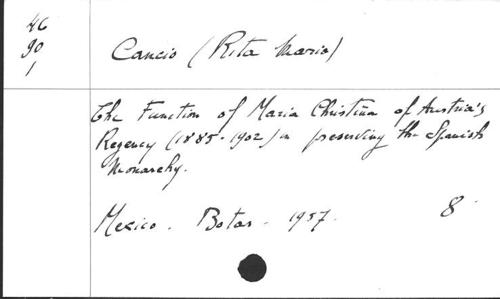 46
90
1
Cancio (Rita Maria)
The Function of Maria Christina of Austria's
Regency (1885-1902) in preserving the Spanish
Monarchy.
Mexico. Botas. 1957. 8